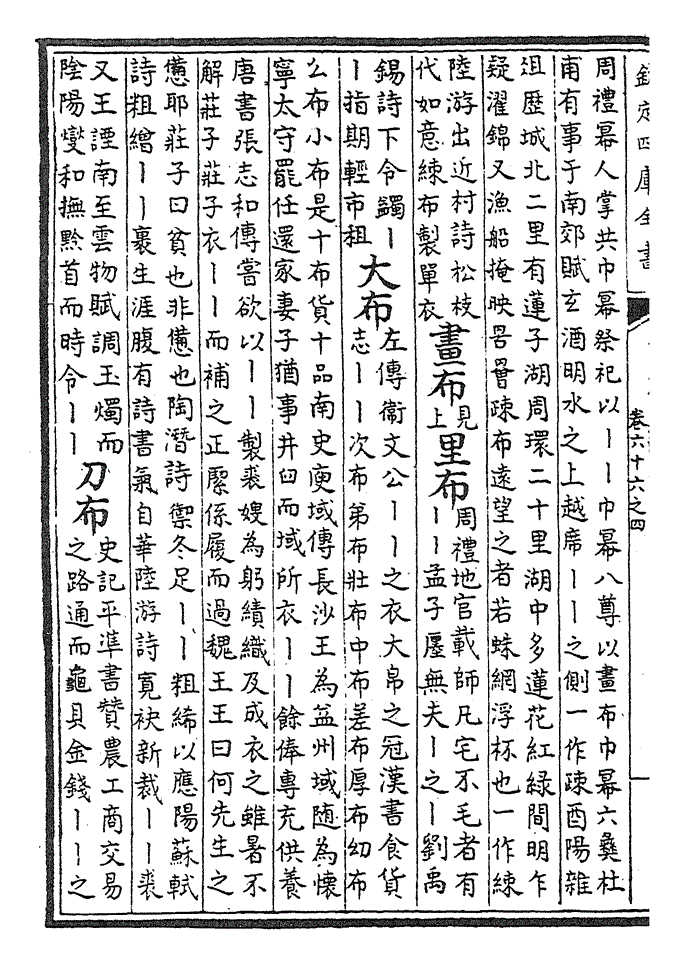 欽定四庫全書
卷六十六之四
周禮冪人掌共巾冪祭祀以丨丨巾冪八尊以畫布巾冪六彝杜
甫有事于南郊賦玄酒明水之上越席丨丨之側一作疎酉陽雜
俎歴城北二里有蓮子湖周環二十里湖中多蓮花紅緑間明乍
疑濯錦又漁船掩映罟罾疎布遠望之者若蛛網浮杯也一作練
陸游出近村詩松枝
代如意練布製單衣
畫布
見
上
里布
周禮地官載師凡宅不毛者有
丨丨孟子廛無夫丨之丨劉禹
錫詩下令蠲丨
丨指期輕市租
大布
左傳衞文公丨丨之衣大帛之冠漢書食貨
志丨丨次布弟布壯布中布差布厚布幼布
么布小布是十布貨十品南史庾域傳長沙王為益州域随為懷
寧太守罷任還家妻子猶事井臼而域所衣丨丨餘俸專充供養
唐書張志和傳嘗欲以丨丨製裘嫂為躬績織及成衣之雖暑不
解莊子莊子衣丨丨而補之正緳係履而過魏王王曰何先生之
憊耶莊子曰貧也非憊也陶潛詩禦冬足丨丨粗絺以應陽蘇軾
詩粗繒丨丨裹生涯腹有詩書氣自華陸游詩寛袂新裁丨丨裘
又王諲南至雲物賦調玉燭而
陰陽燮和撫黔首而時令丨丨
刀布
史記平準書贊農工商交易
之路通而龜貝金錢丨丨之